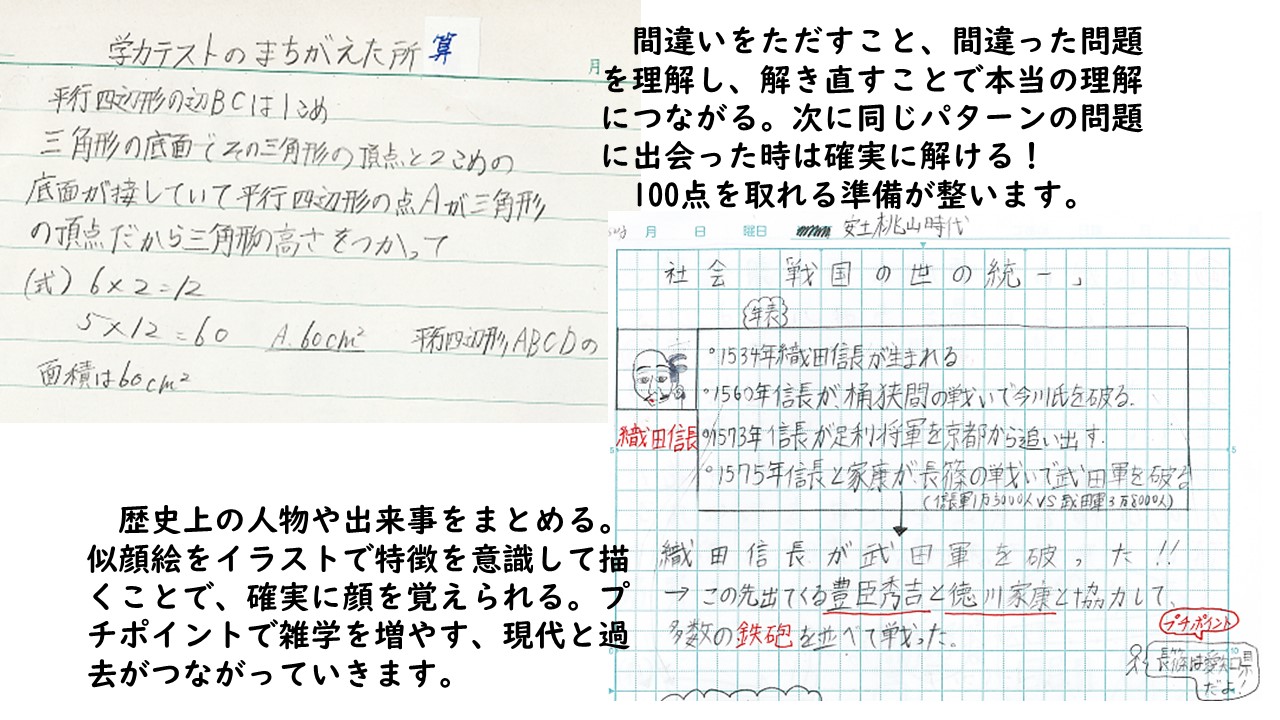 学力テストのまちがえた所 算
月
平行四辺形の辺BCは1こめ
三角形の底面でその三角形の頂点と2こめの
底面が接していて平行四辺形の点Aが三角形
の頂点だから三角形の高さをつかって
(式) 6×2=12
5×12=60 A.60cm² 平行四辺形ABCDの
面積は60cm²
間違いをただすこと、間違った問題
を理解し、解き直すことで本当の理解
につながる。次に同じパターンの問題
に出会った時は確実に解ける!
100点を取れる準備が整います。
月 日 曜日 安土桃山時代
社会 「戦国の世の統一」
年表
°1534年織田信長が生まれる
°1560年信長が桶狭間の戦いで今川氏を破る.
織田信長
°1573年信長が足利将軍を京都から追い出す.
°1575年信長と家康が長篠の戦いで武田軍を破る
VS
織田信長が武田軍を破った!!
→この先出てくる豊臣秀吉と徳川家康と協力して、
多数の鉄砲を並べて戦った。
プチポイント
長篠は愛知県
だよ!
5
5
10
歴史上の人物や出来事をまとめる。
似顔絵をイラストで特徴を意識して描
くことで、確実に顔を覚えられる。プ
チポイントで雑学を増やす、現代と過
去がつながっていきます。